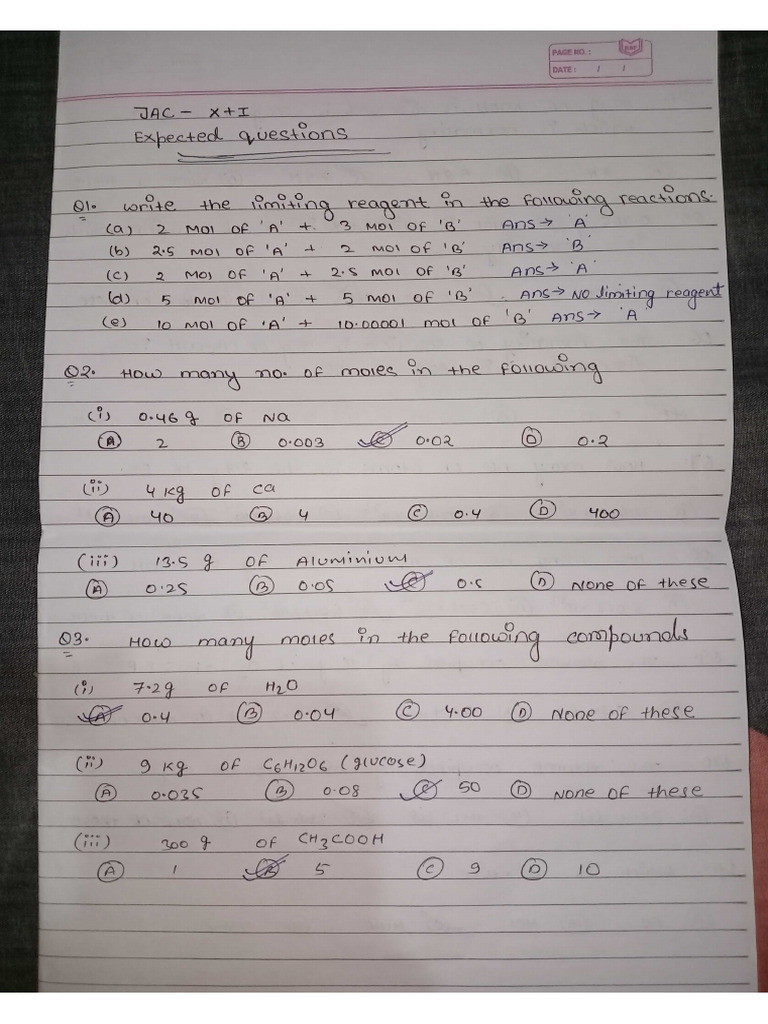 PAGE NO.:
DATE: / /
JAC - X+I
Expected questions
Q1. Write the limiting reagent in the following reactions.
(a) 2 mol of 'A' + 3 mol of 'B' Ans → 'A'
(b) 2.5 mol of 'A' + 2 mol of 'B' Ans → 'B'
(c) 2 mol of 'A' + 2.5 mol of 'B' Ans → 'A'
(d) 5 mol of 'A' + 5 mol of 'B'. Ans → No limiting reagent
(e) 10 mol of 'A' + 10.00001 mol of 'B' Ans → 'A'
Q2. How many no. of moles in the following
(i) 0.46 g of Na
(A) 2 (B) 0.003 (C) 0.02 (D) 0.2
(ii) 4 kg of Ca
(A) 40 (B) 4 (C) 0.4 (D) 400
(iii) 13.5 g of Aluminium
(A) 0.25 (B) 0.05 (C) 0.5 (D) None of these
Q3. How many moles in the following compounds
(i) 7.2g of H2O
(A) 0.4 (B) 0.04 (C) 4.00 (D) None of these
(ii) 9 kg of C6H12O6 (glucose)
(A) 0.035 (B) 0.08 (C) 50 (D) None of these
(iii) 300 g of CH3COOH
(A) 1 (B) 5 (C) 9 (D) 10